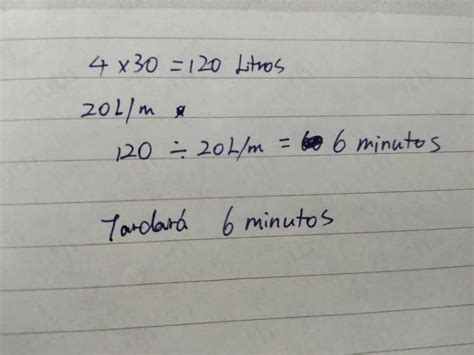 4 x 30 = 120 Litros
20L/m
120 ÷ 20L/m = 6 minutos
Tardará 6 minutos